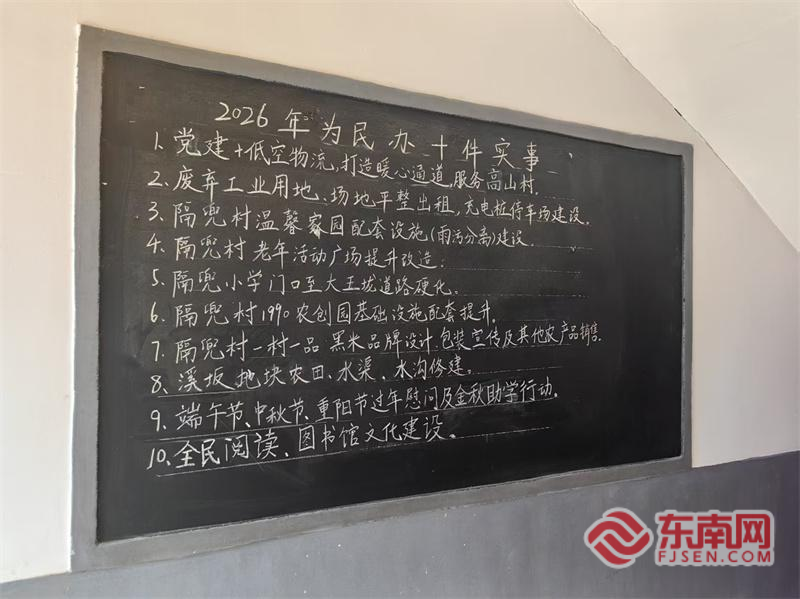 2026年为民办十件实事
1、党建+低空物流,打造暖心通道,服务高山村.
2、废弃工业用地、场地平整出租,充电桩停车场建设。
3、隔兜村温馨家园配套设施(雨污分离)建设.
4、隔兜村老年活动广场提升改造.
5、隔兜小学门口至大王垅道路硬化。
6、隔兜村1990农创园基础设施配套提升.
7、隔兜村一村一品.黑米品牌设计.包装宣传及其他农产品销售.
8、溪坂地块农田、水渠、水沟修建。
9、端午节、中秋节、重阳节过年慰问及金秋助学行动。
10、全民阅读、图书馆文化建设。
东南网
FJSEN.COM